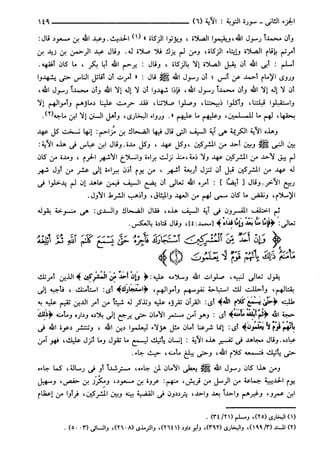 الجزء الثاني - سورة التوبة : الآية (٦)
١٤٩
وأن محمداً رسول الله، ويقيموا الصلاة ، ويؤتوا الزكاة» (١) الحديث. وعبد الله بن مسعود قال:
أمرتم بإقام الصلاة وإيتاء الزكاة، ومن لم يزك فلا صلاة له. وقال عبد الرحمن بن زيد بن
أسلم : أبى الله أن يقبل الصلاة إلا بالزكاة ، وقال : يرحم الله أبا بكر ، ما كان أفقهه.
وروى الإمام أحمد عن أنس ، أن رسول الله ﷺ قال : « أمرت أن أقاتل الناس حتى يشهدوا
أن لا إله إلا الله وأن محمداً رسول الله، فإذا شهدوا أن لا إله إلا الله وأن محمداً رسول الله،
واستقبلوا قبلتنا، وأكلوا ذبيحتنا، وصلوا صلاتنا، فقد حرمت علينا دماؤهم وأموالهم إلا
بحقها، لهم ما للمسلمين، وعليهم ما عليهم ». ورواه البخاري، وأهل السنن إلا ابن ماجه(٢).
وهذه الآية الكريمة هي آية السيف التي قال فيها الضحاك بن مزاحم: إنها نسخت كل عهد
بين النبي ﷺ وبين أحد من المشركين، وكل عهد ، وكل مدة. وقال ابن عباس في هذه الآية:
لم يبق لأحد من المشركين عهد ولا ذمة، منذ نزلت براءة وانسلاخ الأشهر الحرم ، ومدة من كان
له عهد من المشركين قبل أن تنزل أربعة أشهر ، من يوم أذن ببراءة إلى عشر من أول شهر
ربيع الآخر. وقال [ أيضاً ] : أمره الله تعالى أن يضع السيف فيمن عاهد إن لم يدخلوا في
الإسلام، ونقض ما كان سمى لهم من العهد والميثاق، وأذهب الشرط الأول.
ثم اختلف المفسرون في آية السيف هذه، فقال الضحاك والسدي: هي منسوخة بقوله
تعالى: ﴿فَإِمَّا مَنًّا بَعْدُ وَإِمَّا فِدَاءً﴾ [محمد: ٤]، وقال قتادة بالعكس.
﴿وَإِنْ أَحَدٌ مِنَ الْمُشْرِكِينَ اسْتَجَارَكَ فَأَجِرْهُ حَتَّى يَسْمَعَ كَلَامَ اللَّهِ ثُمَّ أَبْلِغْهُ مَأْمَنَهُ
ذَلِكَ بِأَنَّهُمْ قَوْمٌ لَا يَعْلَمُونَ﴾
يقول تعالى لنبيه، صلوات الله وسلامه عليه: ﴿وَإِنْ أَحَدٌ مِنَ الْمُشْرِكِينَ﴾ الذين أمرتك
بقتالهم، وأحللت لك استباحة نفوسهم وأموالهم، ﴿اسْتَجَارَكَ﴾ أي: استأمنك ، فأجبه إلى
طلبته ﴿حَتَّى يَسْمَعَ كَلَامَ اللَّهِ﴾ أي: القرآن تقرؤه عليه وتذكر له شيئاً من أمر الدين تقيم عليه به
حجة الله ﴿ثُمَّ أَبْلِغْهُ مَأْمَنَهُ﴾ أي: وهو آمن مستمر الأمان حتى يرجع إلى بلاده وداره ومأمنه ﴿ذَلِكَ
بِأَنَّهُمْ قَوْمٌ لَا يَعْلَمُونَ﴾ أي: إنما شرعنا أمان مثل هؤلاء ليعلموا دين الله ، وتنتشر دعوة الله في
عباده. وقال مجاهد في تفسير هذه الآية : إنسان يأتيك ليسمع ما تقول وما أنزل عليك، فهو آمن
حتى يأتيك فتسمعه كلام الله، وحتى يبلغ مأمنه، حيث جاء.
ومن هذا كان رسول الله ﷺ يعطي الأمان لمن جاءه، مسترشداً أو في رسالة، كما جاءه
يوم الحديبية جماعة من الرسل من قريش، منهم: عروة بن مسعود، ومكرز بن حفص، وسهيل
ابن عمرو، وغيرهم واحداً بعد واحد، يترددون في القضية بينه وبين المشركين، فرأوا من إعظام
(١) البخاري (٢٥)، ومسلم (٢١ /٣٤).
(٢) المسند (١٩٩/٣)، والبخاري (٣٩٢)، وأبو داود (٢٦٤١)، والترمذي (٢٦٠٨)، والنسائي (٥٠٠٣).